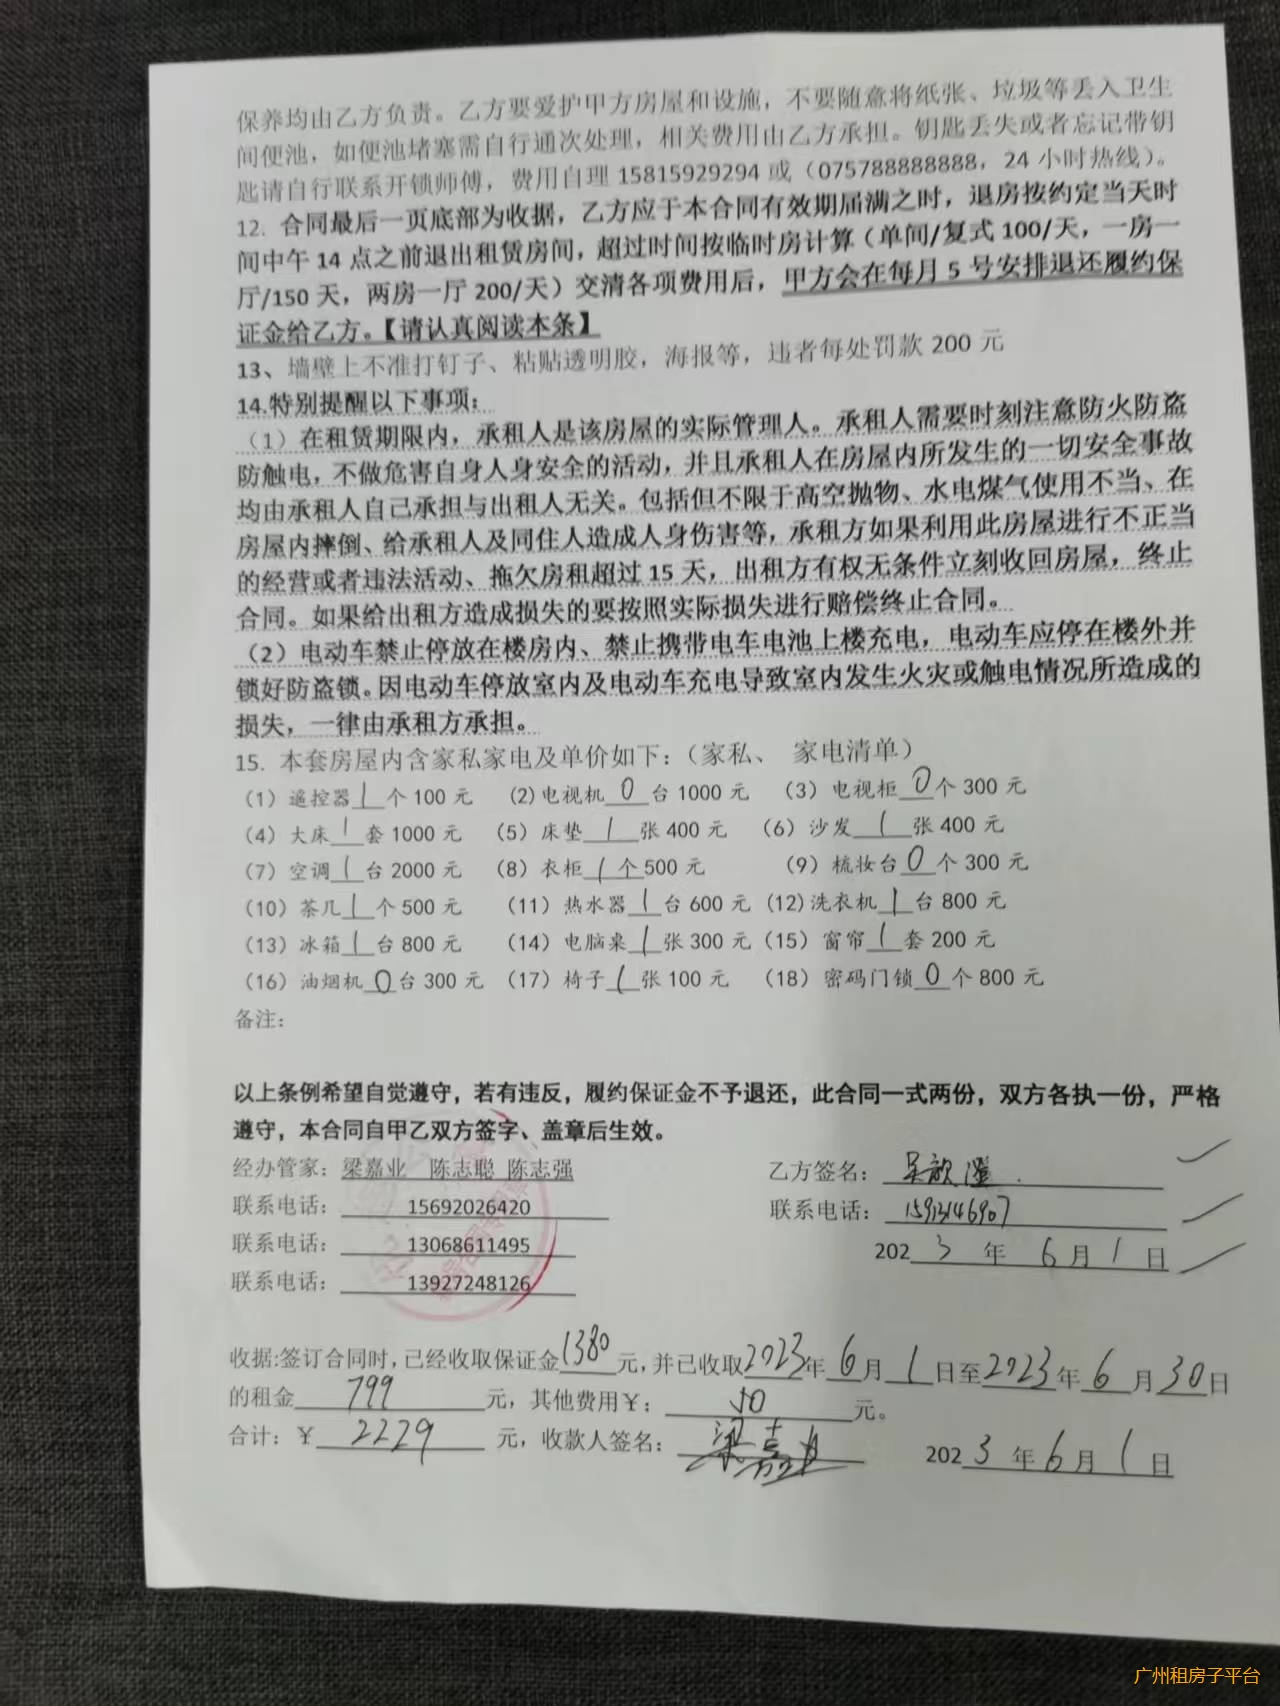 保养均由乙方负责。乙方要爱护甲方房屋和设施，不要随意将纸张、垃圾等丢入卫生
间便池，如便池堵塞需自行通次处理，相关费用由乙方承担。钥匙丢失或者忘记带钥
匙请自行联系开锁师傅，费用自理 15815929294 或（075788888888，24 小时热线）。
12. 合同最后一页底部为收据，乙方应于本合同有效期届满之时，退房按约定当天时
间中午 14 点之前退出租赁房间，超过时间按临时房计算（单间/复式 100/天，一房一
厅/150 天，两房一厅 200/天）交清各项费用后，甲方会在每月 5 号安排退还履约保
证金给乙方。【请认真阅读本条】
13、墙壁上不准打钉子、粘贴透明胶，海报等，违者每处罚款 200 元
14.特别提醒以下事项：
（1）在租赁期限内，承租人是该房屋的实际管理人。承租人需要时刻注意防火防盗
防触电，不做危害自身人身安全的活动，并且承租人在房屋内所发生的一切安全事故
均由承租人自己承担与出租人无关。包括但不限于高空抛物、水电煤气使用不当、在
房屋内摔倒、给承租人及同住人造成人身伤害等，承租方如果利用此房屋进行不正当
的经营或者违法活动、拖欠房租超过 15 天，出租方有权无条件立刻收回房屋，终止
合同。如果给出租方造成损失的要按照实际损失进行赔偿终止合同。
（2）电动车禁止停放在楼房内、禁止携带电车电池上楼充电，电动车应停在楼外并
锁好防盗锁。因电动车停放室内及电动车充电导致室内发生火灾或触电情况所造成的
损失，一律由承租方承担。
15. 本套房屋内含家私家电及单价如下：（家私、 家电清单）
（1）遥控器 1 个 100 元 （2）电视机 0 台 1000 元 （3）电视柜 0 个 300 元
（4）大床 1 套 1000 元 （5）床垫 1 张 400 元 （6）沙发 1 张 400 元
（7）空调 1 台 2000 元 （8）衣柜 1 个 500 元 （9）梳妆台 0 个 300 元
（10）茶几 1 个 500 元 （11）热水器 1 台 600 元 （12）洗衣机 1 台 800 元
（13）冰箱 1 台 800 元 （14）电脑桌 1 张 300 元 （15）窗帘 1 套 200 元
（16）油烟机 0 台 300 元 （17）椅子 1 张 100 元 （18）密码门锁 0 个 800 元
备注：
以上条例希望自觉遵守，若有违反，履约保证金不予退还，此合同一式两份，双方各执一份，严格
遵守，本合同自甲乙双方签字、盖章后生效。
经办管家：梁嘉业 陈志聪 陈志强 乙方签名：
联系电话：15692026420 联系电话：15913146907
联系电话：13068611495 2023 年 6 月 1 日
联系电话：13927248126
收据:签订合同时,已经收取保证金 1380 元,并已收取 2023 年 6 月 1 日至 2023 年 6 月 30 日
的租金 799 元，其他费用￥：50 元。
合计：￥ 2229 元，收款人签名：梁嘉业 2023 年 6 月 1 日
广州租房子平台